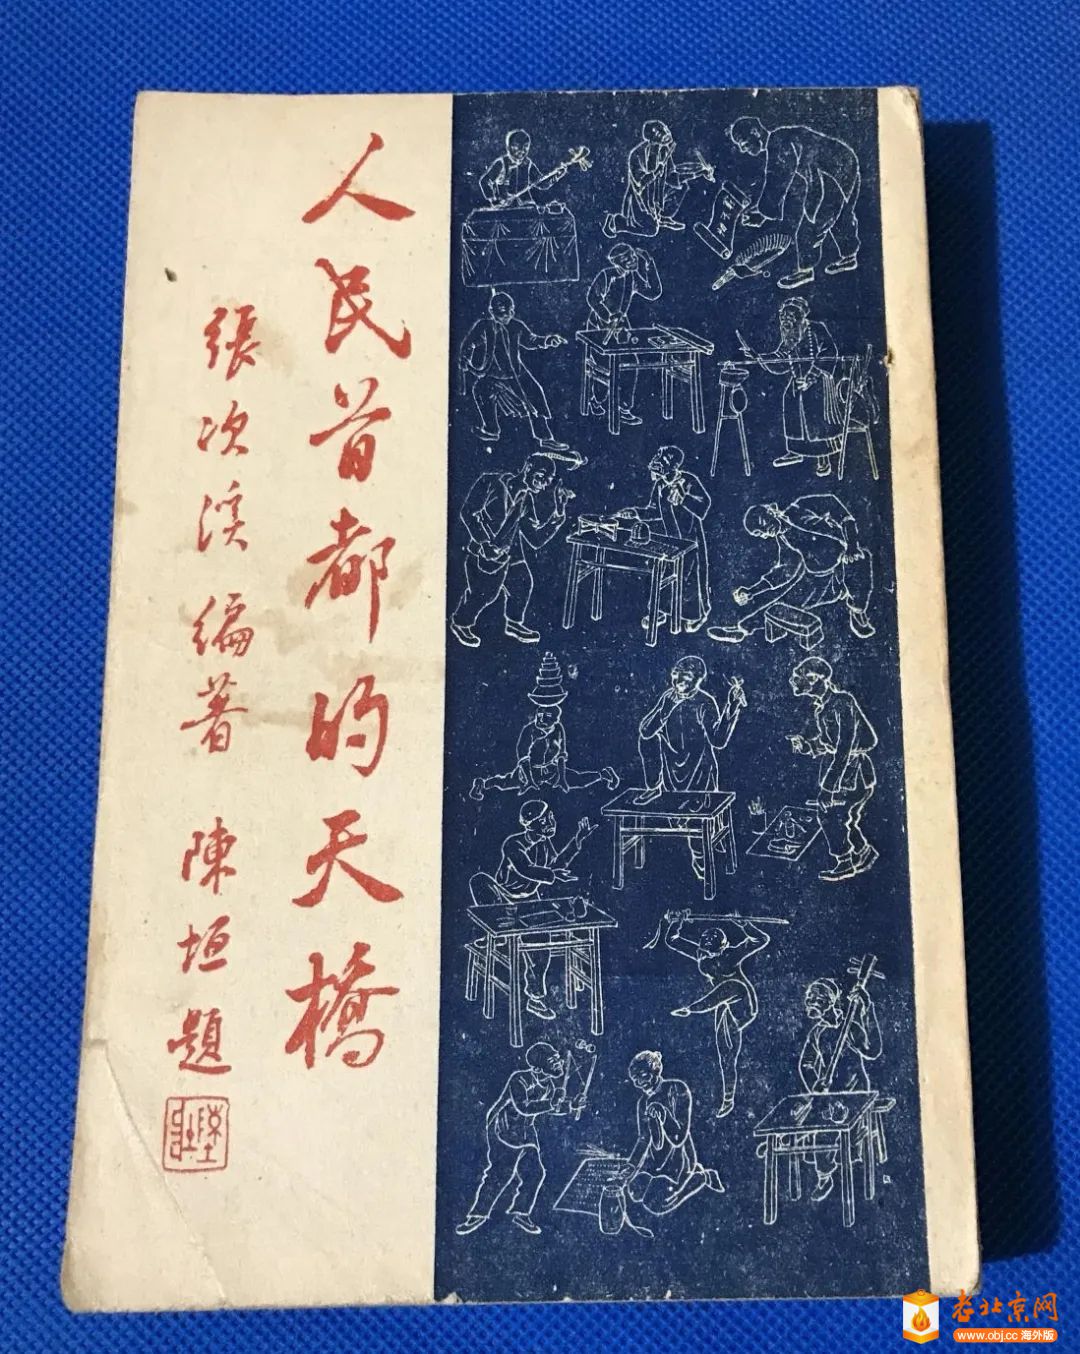 人民首都的天橋
張次溪 編著 陳垣題
老北京网
www.obj.cc 海外版